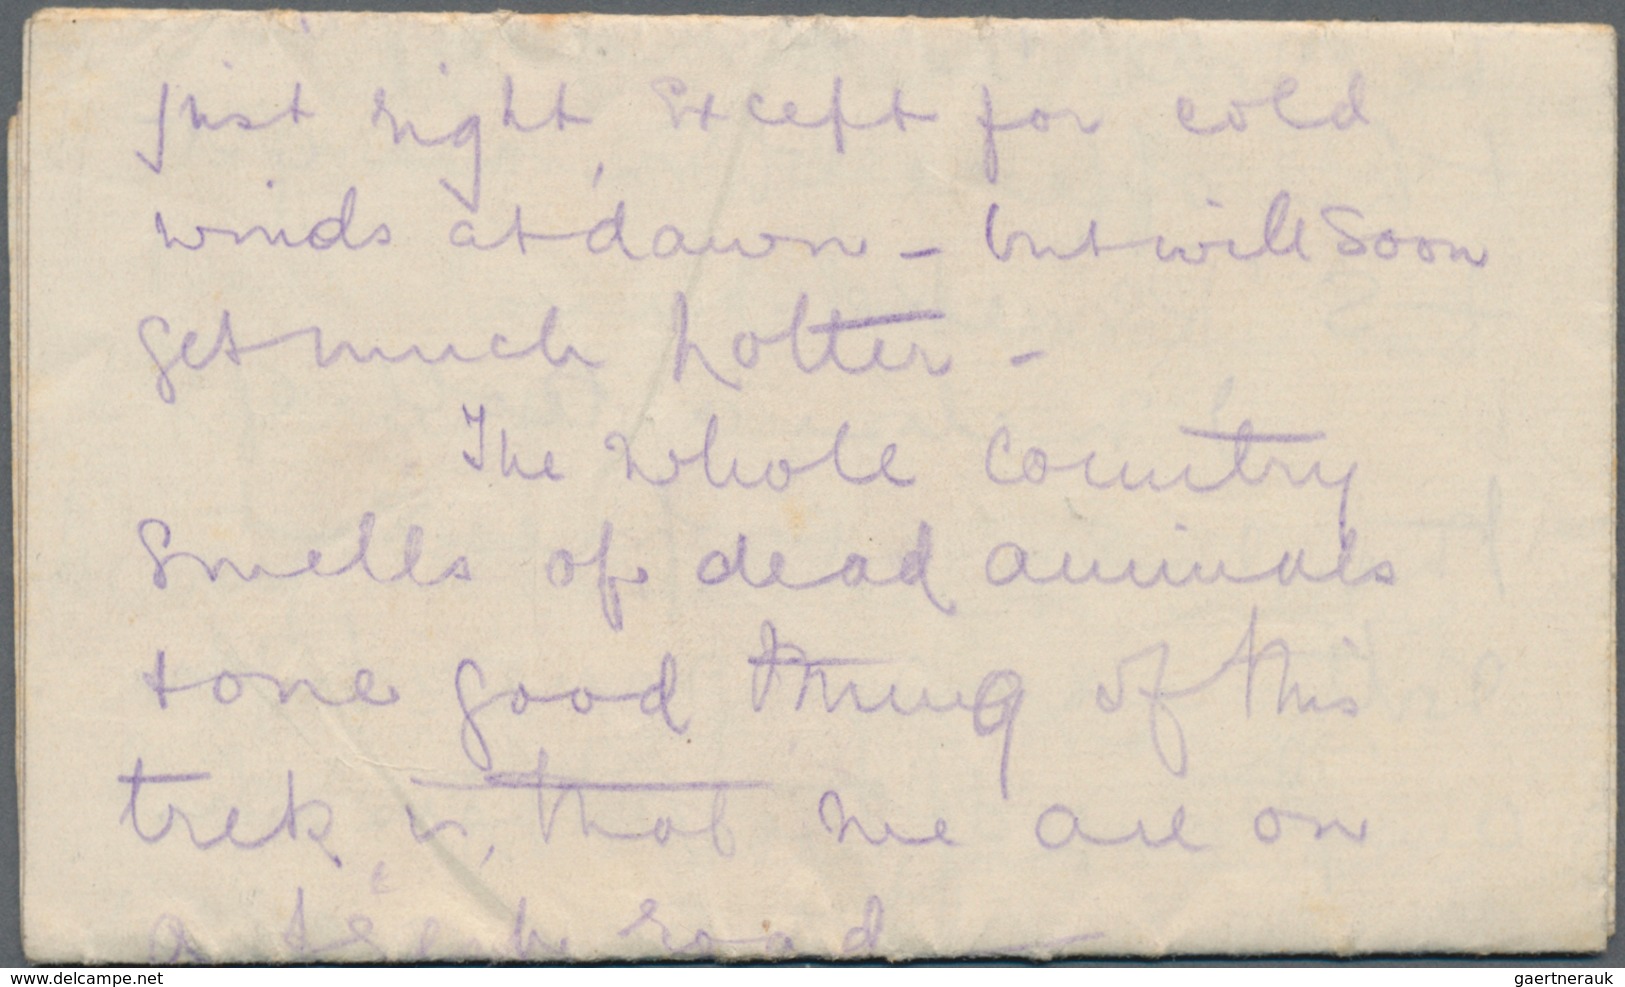 just right, except for cold
winds at dawn – but will soon
get much hotter –
The whole country
smells of dead animals
+ one good thing of this
trek, is, that we are on
a fresh road –
www.delcampe.net
gaertnerauk